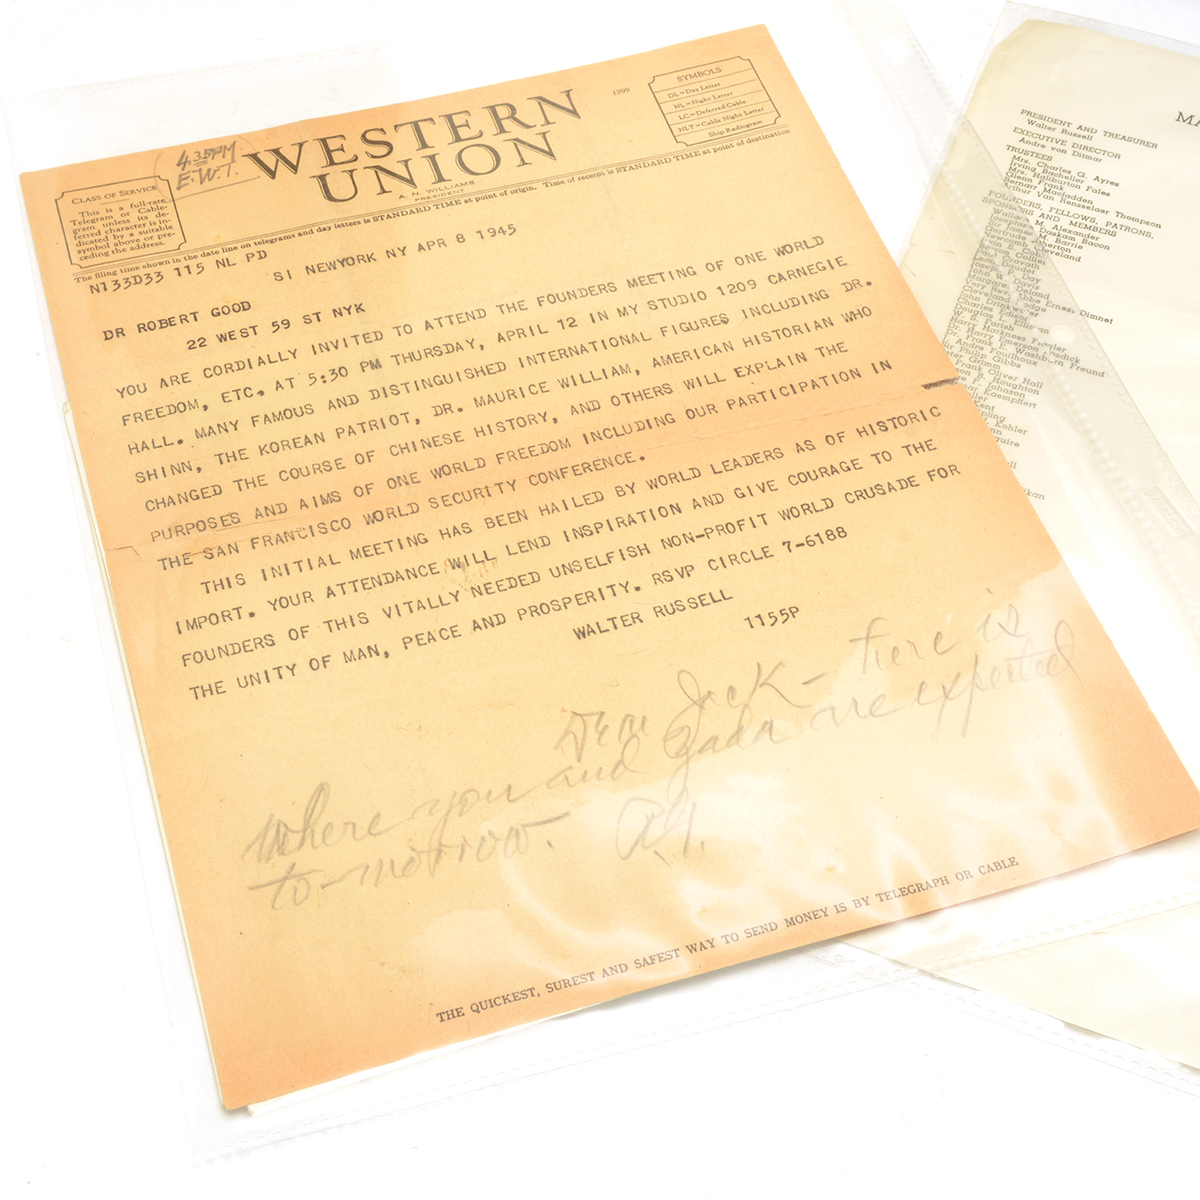 4.35PM.
E.W.T.
CLASS OF SERVICE
This is a full-rate
Telegram or Cable-
gram unless its de-
ferred character is in-
dicated by a suitable
symbol above or pre-
ceding the address.
WESTERN
UNION
A. N. WILLIAMS
PRESIDENT
1299
SYMBOLS
DL=Day Letter
NL=Night Letter
LC=Deferred Cable
NLT=Cable Night Letter
Ship Radiogram
The filing time shown in the date line on telegrams and day letters is STANDARD TIME at point of origin. Time of receipt is STANDARD TIME at point of destination
N133D33 115 NL PD
SI NEWYORK NY APR 8 1945
DR ROBERT GOOD
22 WEST 59 ST NYK
YOU ARE CORDIALLY INVITED TO ATTEND THE FOUNDERS MEETING OF ONE WORLD
FREEDOM, ETC. AT 5:30 PM THURSDAY, APRIL 12 IN MY STUDIO 1209 CARNEGIE
HALL. MANY FAMOUS AND DISTINGUISHED INTERNATIONAL FIGURES INCLUDING DR.
SHINN, THE KOREAN PATRIOT, DR. MAURICE WILLIAM, AMERICAN HISTORIAN WHO
CHANGED THE COURSE OF CHINESE HISTORY, AND OTHERS WILL EXPLAIN THE
PURPOSES AND AIMS OF ONE WORLD FREEDOM INCLUDING OUR PARTICIPATION IN
THE SAN FRANCISCO WORLD SECURITY CONFERENCE.
THIS INITIAL MEETING HAS BEEN HAILED BY WORLD LEADERS AS OF HISTORIC
IMPORT. YOUR ATTENDANCE WILL LEND INSPIRATION AND GIVE COURAGE TO THE
FOUNDERS OF THIS VITALLY NEEDED UNSELFISH NON-PROFIT WORLD CRUSADE FOR
THE UNITY OF MAN, PEACE AND PROSPERITY. RSVP CIRCLE 7-6188
WALTER RUSSELL
1155P
Dear Jack - here is
where you and Zada are expected
to-morrow.
THE QUICKEST, SUREST AND SAFEST WAY TO SEND MONEY IS BY TELEGRAPH OR CABLE
MA
PRESIDENT AND TREASURER
Walter Russell
EXECUTIVE DIRECTOR
Andre von Ditmar
TRUSTEES
Mrs. Charles G. Ayres
Irving Bacheller
Mrs. Haliburton Fales
Glenn Frank
Bernarr Macfadden
Arthur Van Rensselaer Thompson
FOUNDERS, FELLOWS, PATRONS,
SPONSORS AND MEMBERS
Wallace M. Alexander
Daskam Bacon
Sir James M. Barrie
Gertrude Atherton
Cleveland
Collier
Cravath
P. Day
John W. Davis
Margaret Deland
Very Rev. Abbe Ernest Dimnet
Cleveland Dodge
John Drinkwater
Charles Edison
Douglas L. Elliman
W. S. Farish
Harry Harkness Flagler
Dr. Harry Emerson Fosdick
Dr. Frank E. Washburn Freund
Andre Fouilhoux
Sir Philip Gibbs
Peter Grimm
Frank Oliver Hall
S. Houghton
F. Johnson
Kaempffert
Kent
Kipling
Kohler